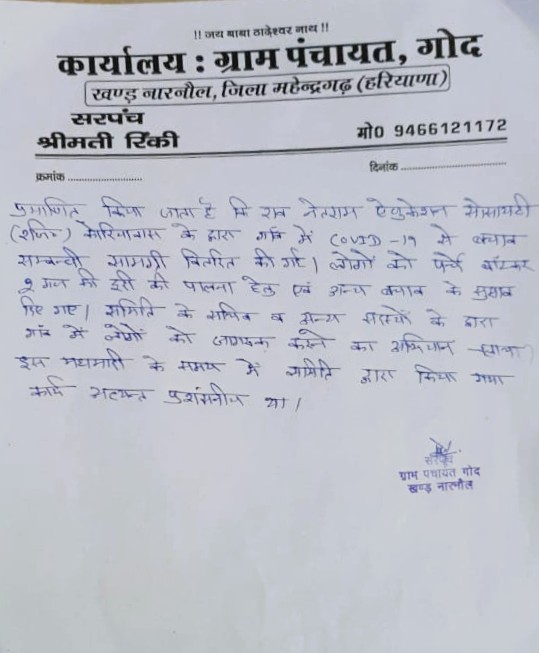 !! जय बाबा ठाडेश्वर नाथ !!
कार्यालय : ग्राम पंचायत, गोद
खण्ड नारनौल, जिला महेन्द्रगढ़ (हरियाणा)
सरपंच
श्रीमती रिंकी
मो0 9466121172
क्रमांक ........................
दिनांक ..................................
प्रमाणित किया जाता है कि राव नेतराम ऐजुकेशन सोसायटी
(रजि०) के द्वारा गाँव में COVID-19 से बचाव
सम्बन्धी सामग्री वितरित की गई। लोगों को पर्चे बाँटकर
२ गज की दूरी की पालना हेतु एवं अन्य बचाव के सुझाव
दिए गए। समिति के सचिव व अन्य सदस्यों के द्वारा
गाँव में लोगों को जागरूक करने का अभियान चलाया
इस महामारी के समय में समिति द्वारा किया गया
कार्य अत्यन्त प्रशंसनीय था।
सरपंच
ग्राम पंचायत गोद
खण्ड नारनौल